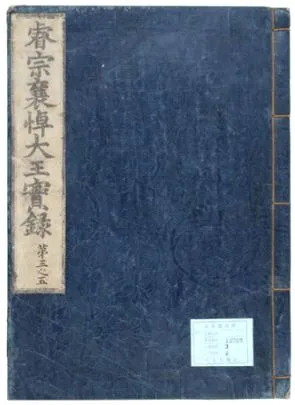 睿宗襄悼大王實錄
第三之五